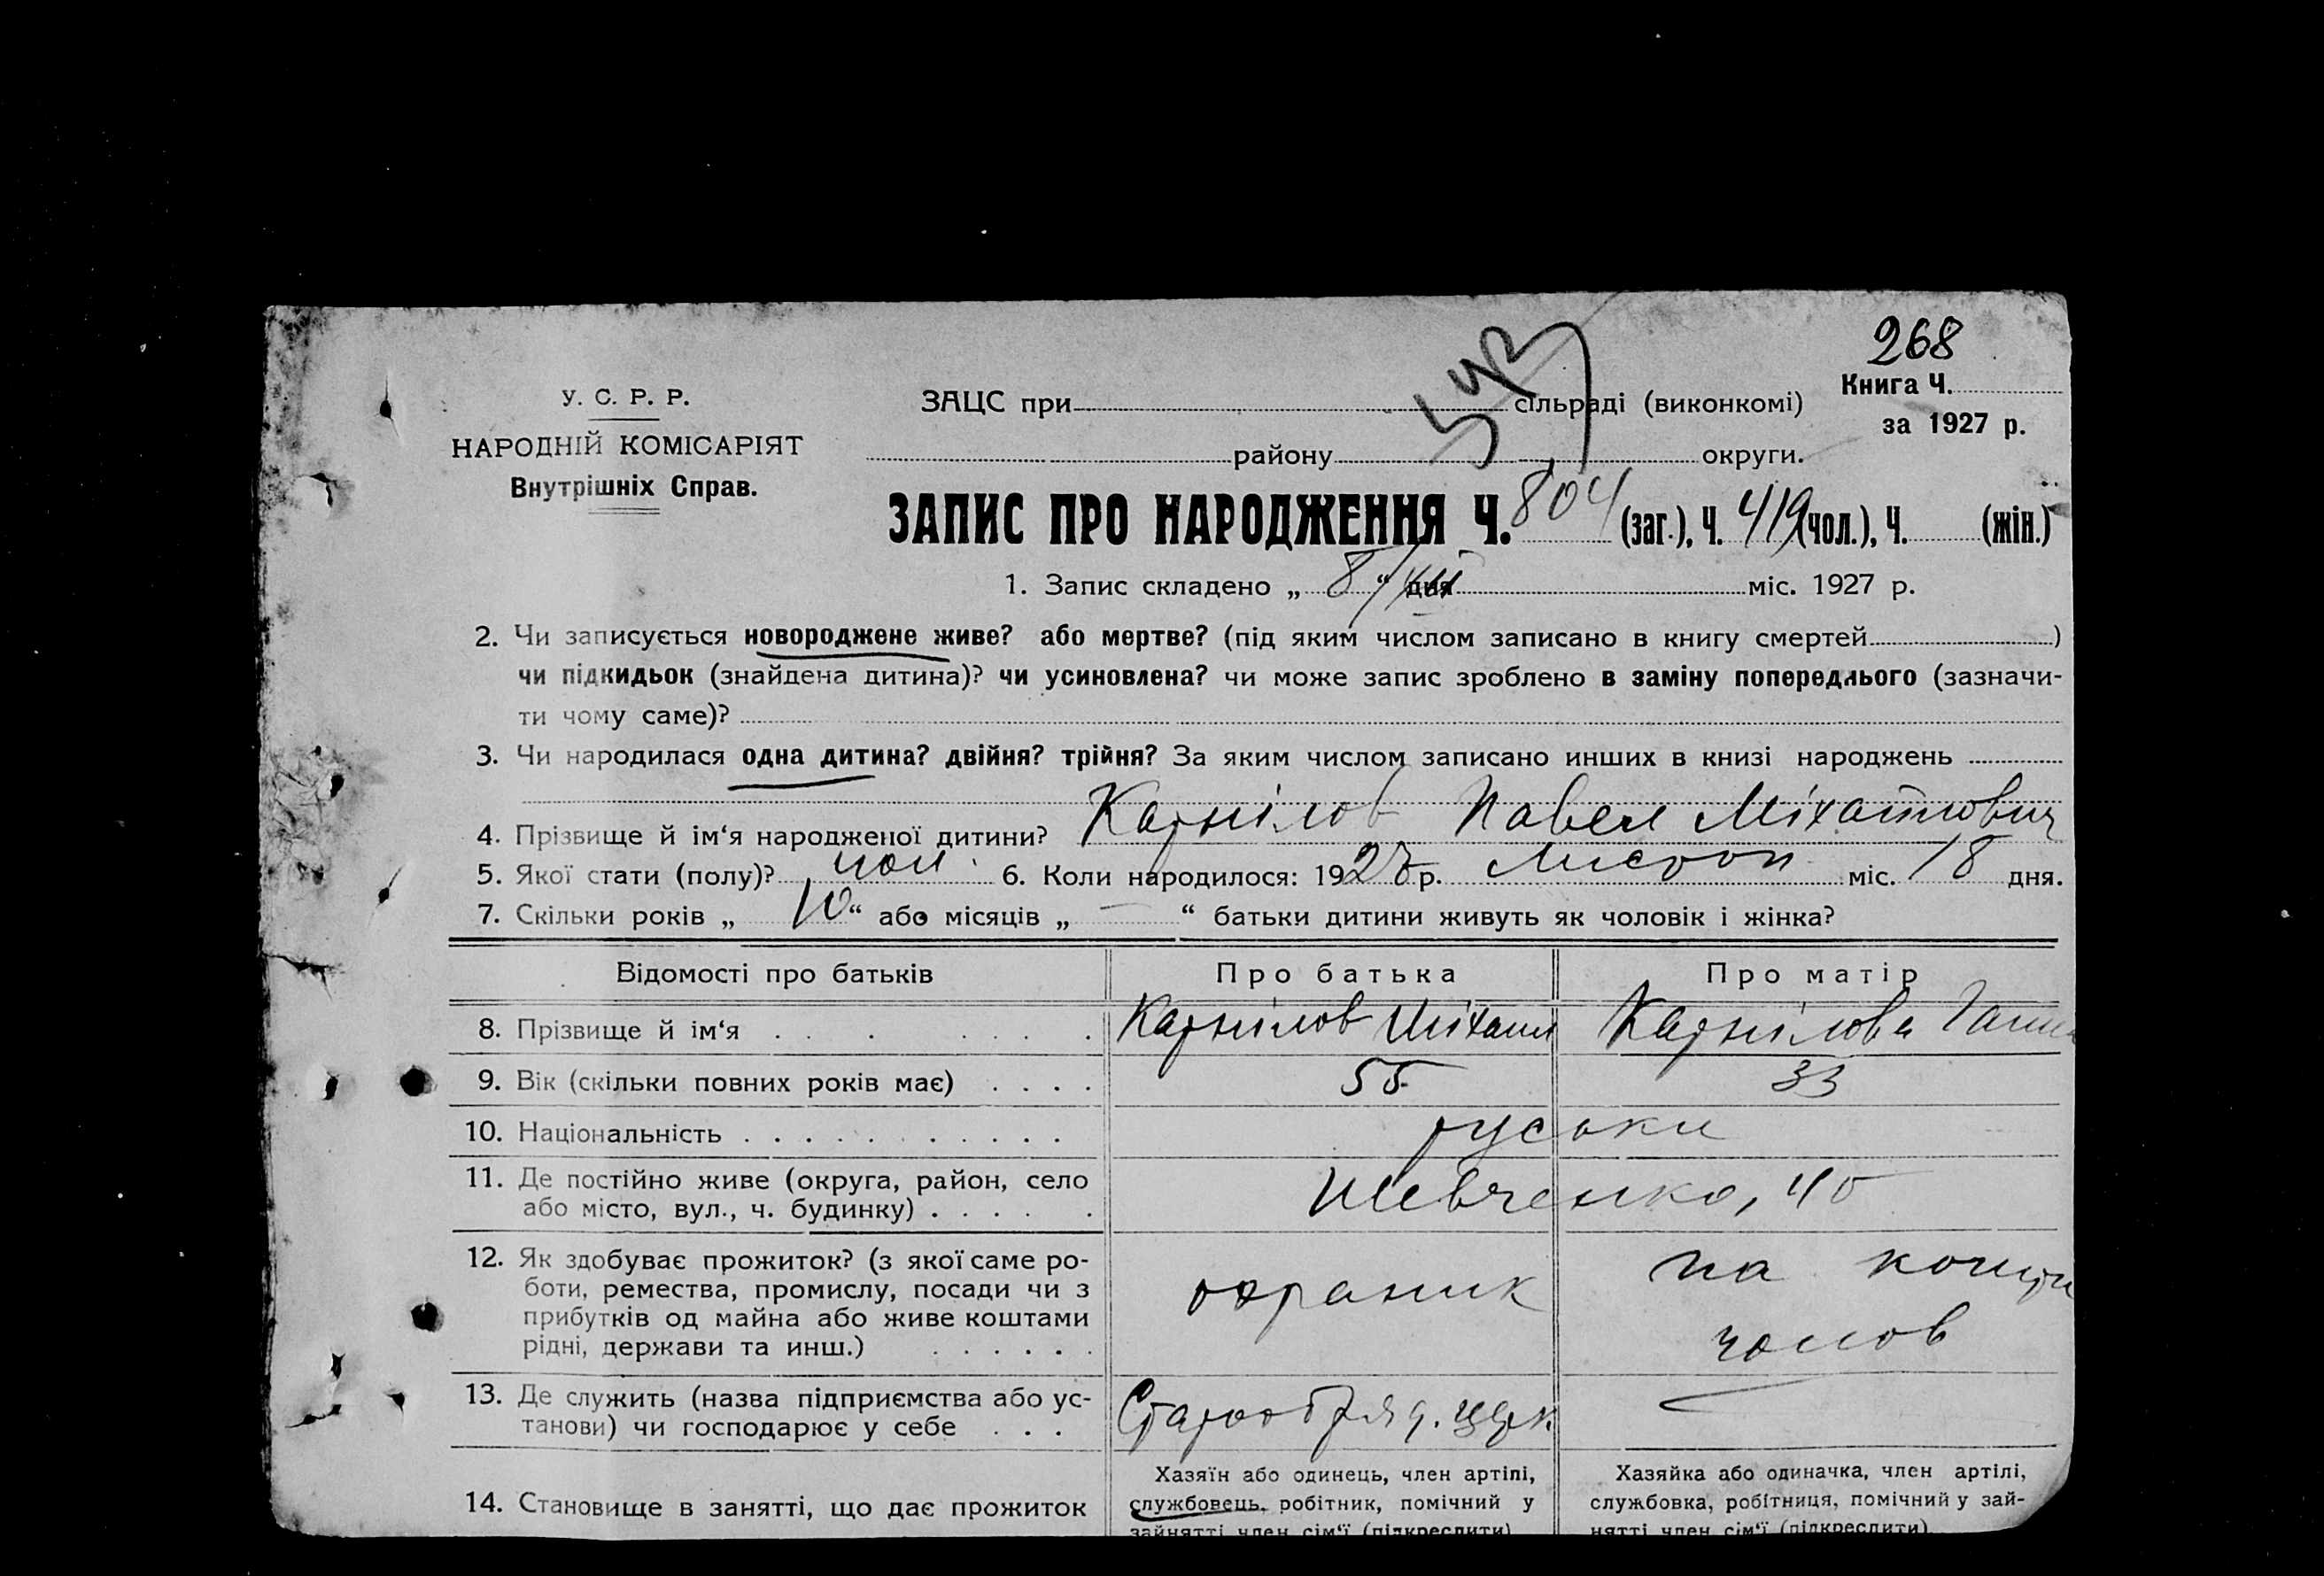 268
У. С. Р. Р.
НАРОДНІЙ КОМІСАРІЯТ
Внутрішніх Справ.
ЗАЦС при сільраді (виконкомі)
району округи.
Книга Ч.
за 1927 р.
ЗАПИС ПРО НАРОДЖЕННЯ Ч. 804 (заг.), Ч. 419 (чол.), Ч. (жін.)
1. Запис складено „ 8 “ дня міс. 1927 р.
2. Чи записується новороджене живе? або мертве? (під яким числом записано в книгу смертей )
чи підкидьок (знайдена дитина)? чи усиновлена? чи може запис зроблено в заміну попереднього (зазначи-
ти чому саме)?
3. Чи народилася одна дитина? двійня? трійня? За яким числом записано инших в книзі народжень
4. Прізвище й ім‘я народженої дитини? Карнілов Павел Міхайлович
5. Якої стати (полу)? чол. 6. Коли народилося: 1927 р. Листоп міс. 18 дня.
7. Скільки років „ 10 “ або місяців „ — “ батьки дитини живуть як чоловік і жінка?
Відомості про батьків Про батька Про матір
8. Прізвище й ім‘я Карнілов Міхаил Карнілова Ганна
9. Вік (скільки повних років має) 55 33
10. Національність руськи
11. Де постійно живе (округа, район, село
або місто, вул., ч. будинку) Шевченко, 40
12. Як здобуває прожиток? (з якої саме ро-
боти, ремества, промислу, посади чи з
прибутків од майна або живе коштами
рідні, держави та инш.) охраник на кошти
чолов
13. Де служить (назва підприємства або ус-
танови) чи господарює у себе Старообряд. церк.
14. Становище в занятті, що дає прожиток
Хазяїн або одинець, член артілі,
службовець, робітник, помічний у
зайнятті член сім‘ї (підкреслити)
Хазяйка або одиначка, член артілі,
службовка, робітниця, помічний у зай-
нятті член сім‘ї (підкреслити)